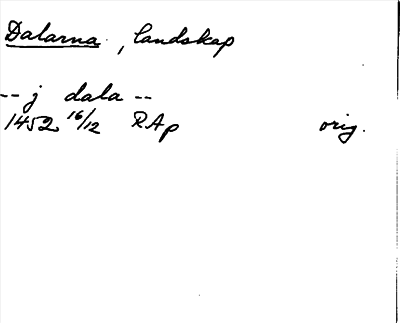 Dalarna, landskap
-- j dala --
1452 16/12 RAp orig.